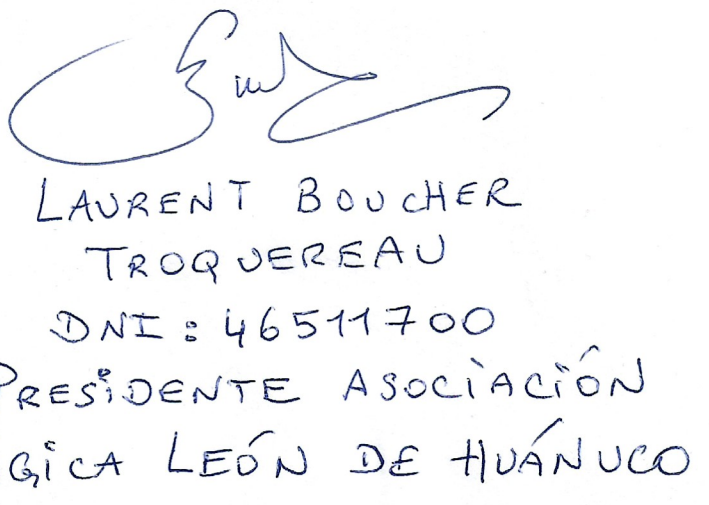 LAURENT BOUCHER
TROQUEREAU
DNI : 46511700
PRESIDENTE ASOCIACIÓN
GICA LEÓN DE HUÁNUCO